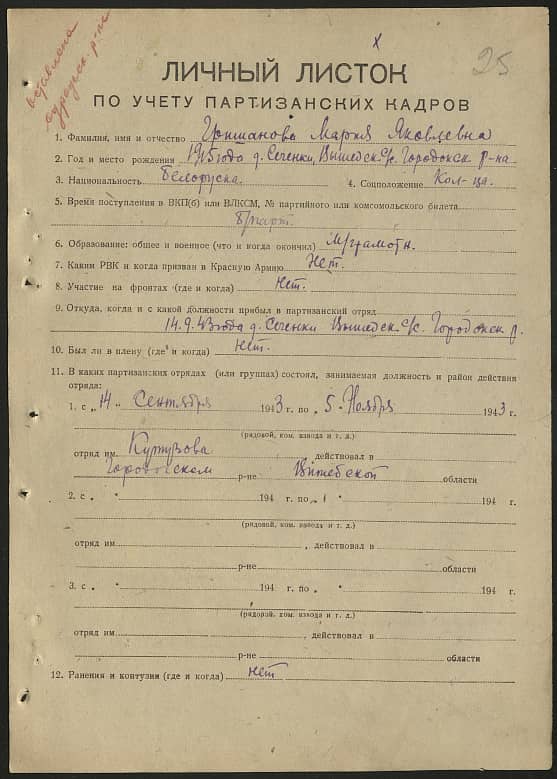 х
25
оставлена
ЛИЧНЫЙ ЛИСТОК
ПО УЧЕТУ ПАРТИЗАНСКИХ КАДРОВ
1. Фамилия, имя и отчество Гришанова Мария Яковлевна
2. Год и место рождения 1915 года д. Сеченки, Вышедск. с/с. Городокск р-на
3. Национальность Белоруска. 4. Соцположение Кол-ца.
5. Время поступления в ВКП(б) или ВЛКСМ, № партийного или комсомольского билета
б/парт.
6. Образование: общее и военное (что и когда окончил) М/грамотн.
7. Каким РВК и когда призван в Красную Армию Нет.
8. Участие на фронтах (где и когда) Нет.
9. Откуда, когда и с какой должности прибыл в партизанский отряд
14.9.43 года д. Сеченки Вышедск. с/с. Городокск р.
10. Был ли в плену (где и когда) Нет.
11. В каких партизанских отрядах (или группах) состоял, занимаемая должность и район действия
отряда:
1. с „14" Сентября 1943 г. по „5" Ноября 1943 г.
(рядовой, ком. взвода и т. д.)
отряд им. Кутузова , действовал в
Городокском р-не Витебской области
2. с „ " 194 г. по „ " 194 г.
(рядовой, ком. взвода и т. д.)
отряд им. , действовал в
р-не области
3. с „ " 194 г. по „ " 194 г.
(рядовой, ком. взвода и т. д.)
отряд им. , действовал в
р-не области
12. Ранения и контузии (где и когда) нет